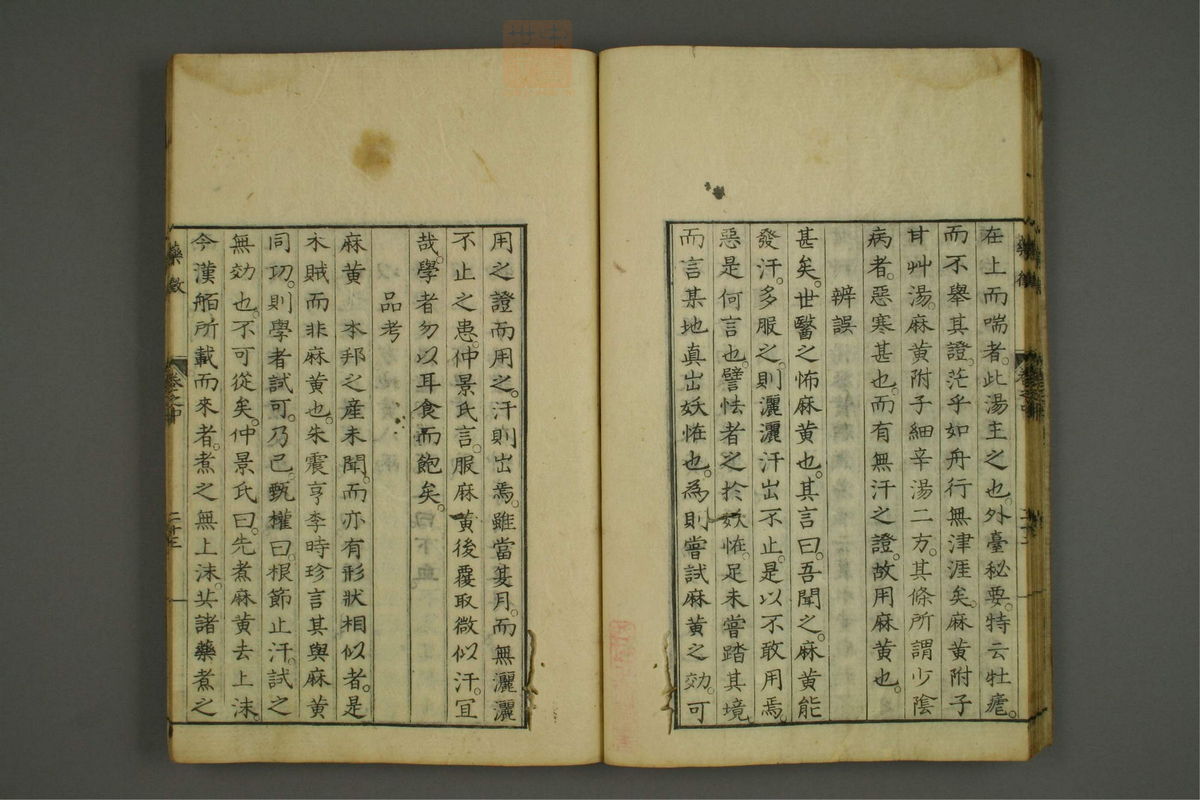 在上而喘者。此湯主之也。外臺秘要。特云牡瘧。
而不舉其證。茫乎如舟行無津涯矣。麻黄附子
甘艸湯。麻黄附子細辛湯二方。其條所謂少陰
病者。惡寒甚也。而有無汗之證。故用麻黄也。
辨誤
甚矣。世醫之怖麻黄也。其言曰。吾聞之。麻黄能
發汗。多服之。則灑灑汗出不止。是以不敢用焉。
惡是何言也。譬怯者之於妖恠。足未嘗踏其境
而言某地真出妖恠也。為則嘗試麻黄之効。可
用之證而用之。汗則出焉。雖當夏月。而無灑灑
不止之患。仲景氏言。服麻黄後覆取微似汗。宜
哉。學者勿以耳食而飽矣。
品考
麻黄 本邦之産未聞。而亦有形狀相似者。是
木賊而非麻黄也。朱震亨李時珍言其與麻黄
同功。則學者試可。乃已。甄權曰。根節止汗。試之
無効也。不可從矣。仲景氏曰。先煮麻黄去上沫。
今漢舶所載而來者。煮之無上沫。共諸藥煮之
藥徵
卷之中
二十三